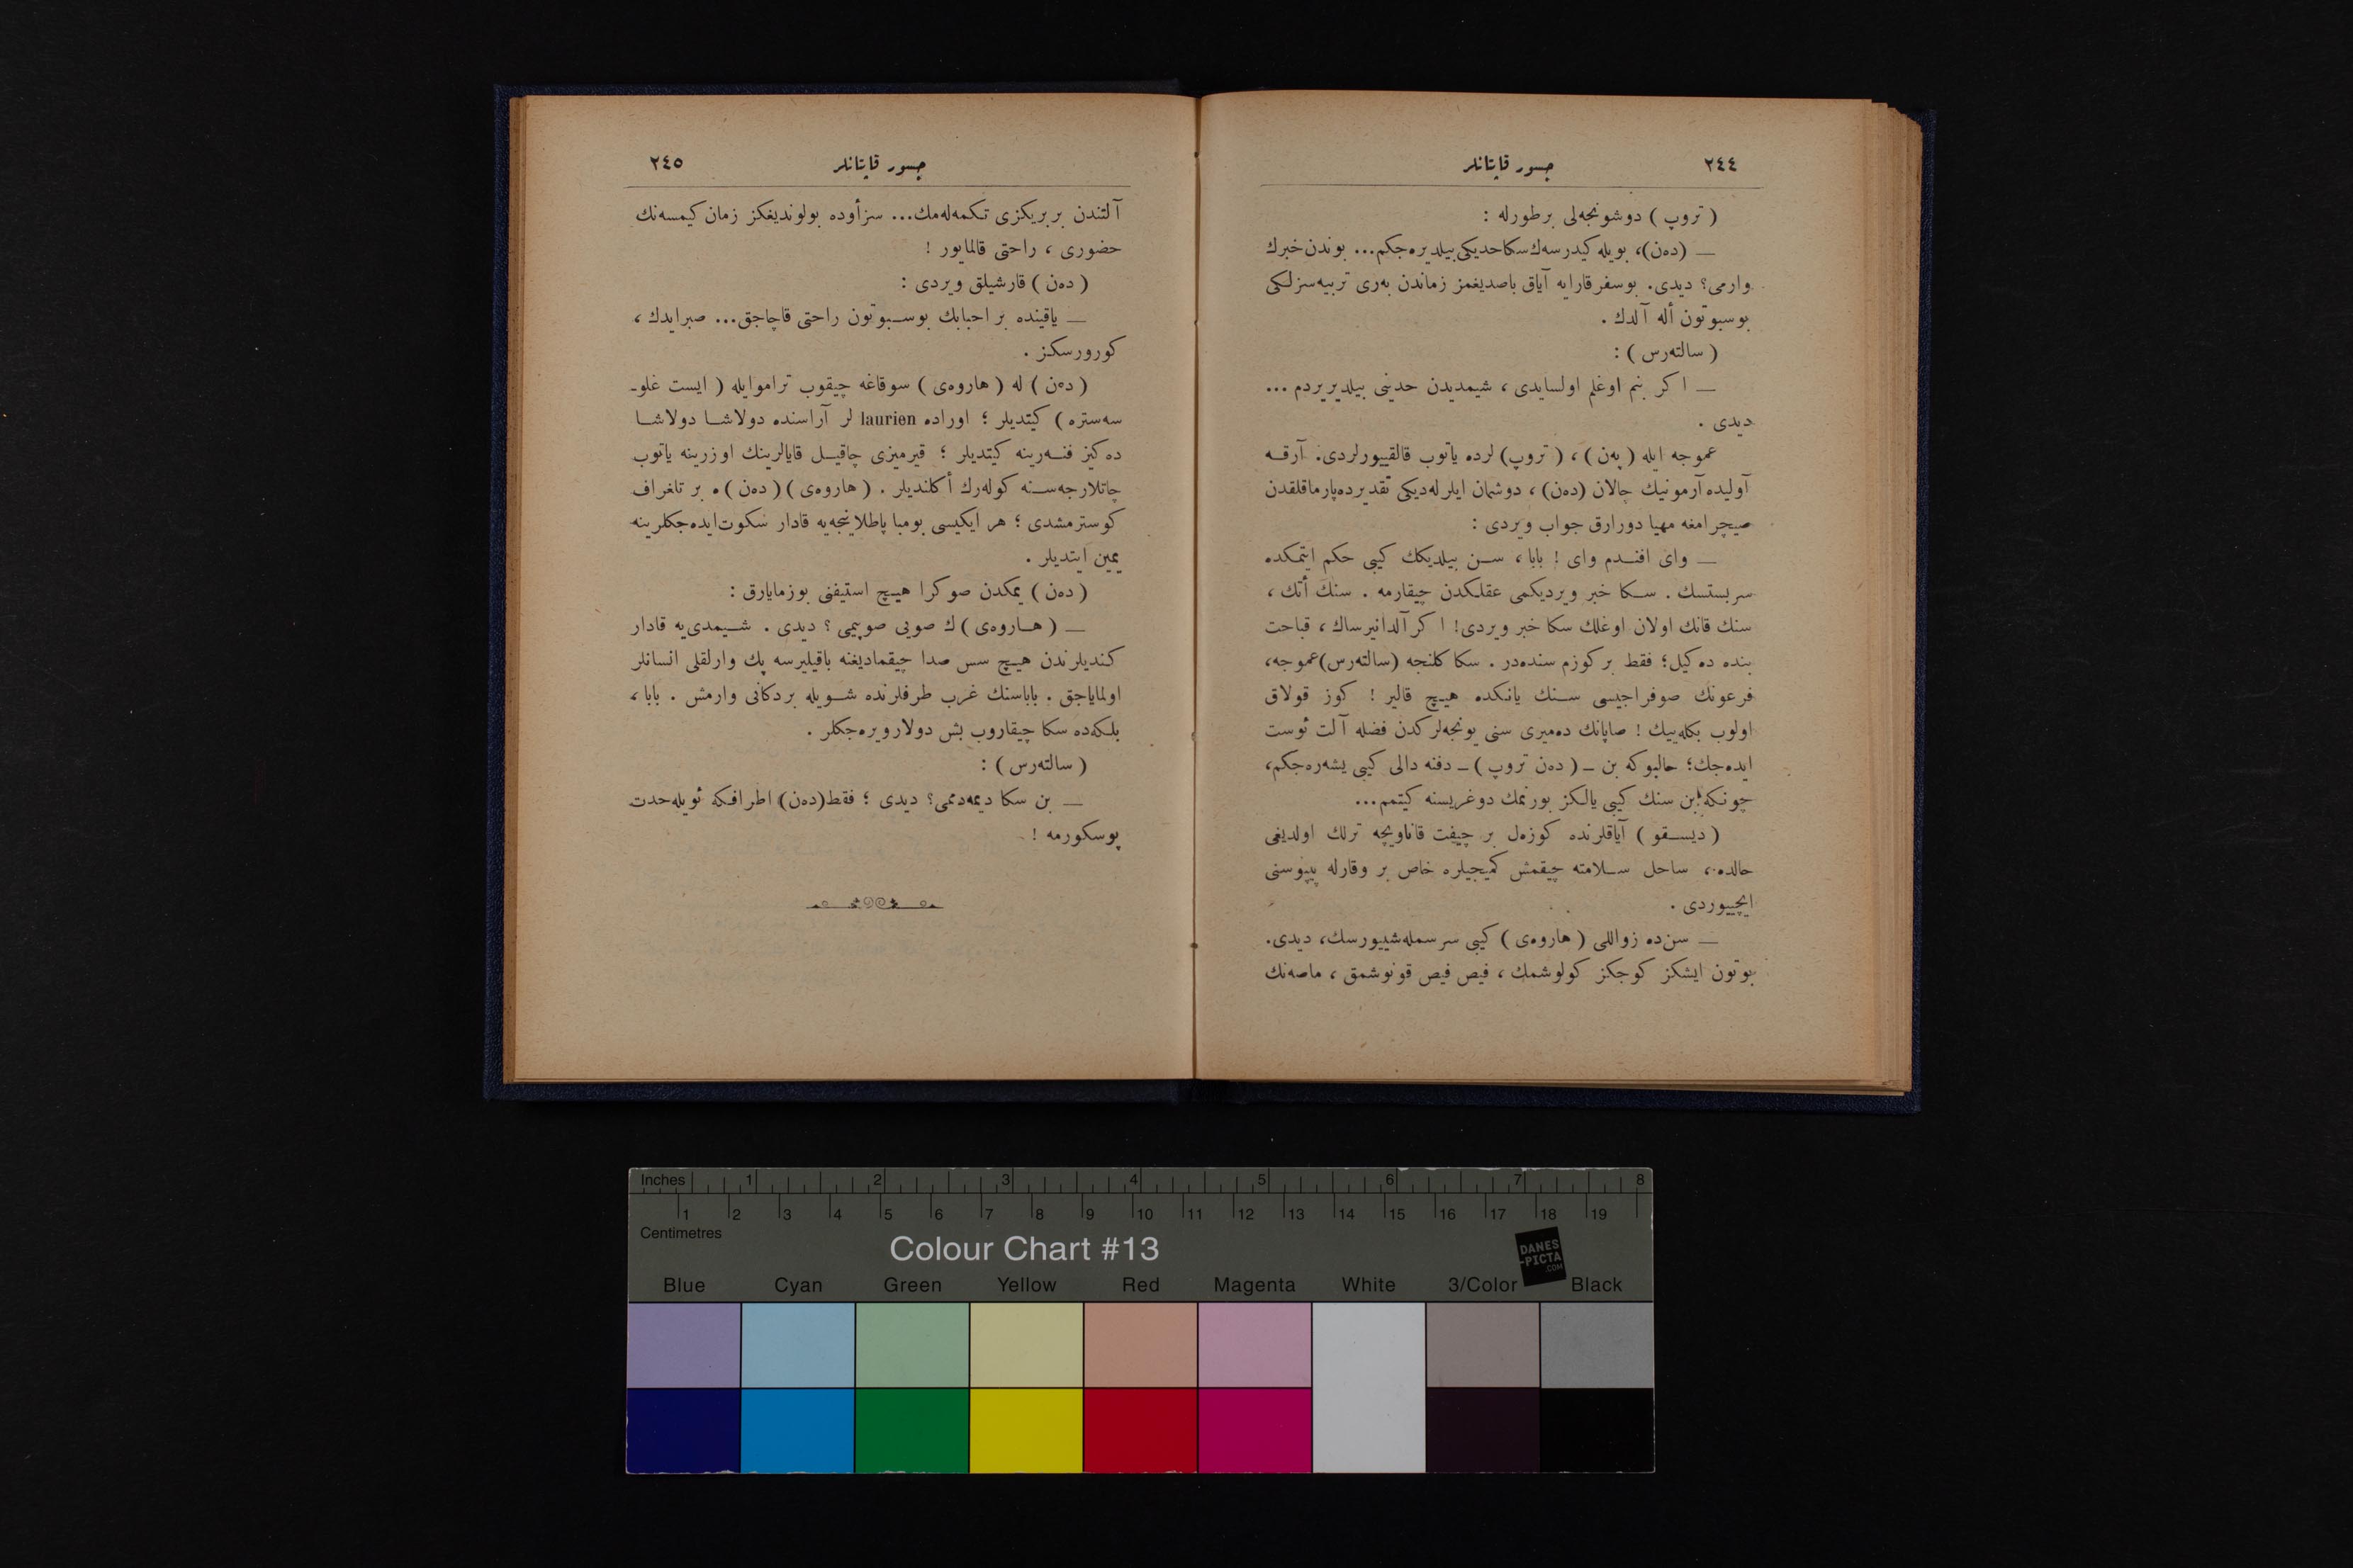 ٢٤٤
جسور قاپتانلر
( تروپ ) دوشونجه‌لی بر طورله :
— (ده‌ن)، بویله کیدرسه‌ك سکا حدیکی بیلدیره‌جکم... بوندن خبرك
وارمی؟ دیدی. بو سفر قارایه آیاق باصدیغمز زماندن به‌ری تربیه‌سزلکی
بوسبوتون أله آلدك .
( سالته‌رس ) :
— اکر بنم اوغلم اولسایدی ، شیمدیدن حدینی بیلدیریردم ...
دیدی .
عموجه ایله ( په‌ن ) ، ( تروپ ) لرده یاتوب قالقییورلردی. آرقه
آولیده آرمونیك چالان (ده‌ن) ، دوشمان ایلرله‌دیکی تقدیرده پارماقلقدن
صیچرامغه مهیا دورارق جواب ویردی :
— وای افندم وای ! بابا ، سن بیلدیکك کیبی حکم ایتمکده
سربستسك . سکا خبر ویردیکمی عقلکدن چیقارمه . سنك أتك ،
سنك قانك اولان اوغلك سکا خبر ویردی! اکر آلدانیرساك ، قباحت
بنده ده‌کیل؛ فقط بر کوزم سنده‌در . سکا کلنجه (سالته‌رس) عموجه،
فرعونك صوفراجیسی سنك یانکده هیچ قالیر ! کوز قولاق
اولوب بکله‌ییك ! صاپانك ده‌میری سنی یونجه‌لرکدن فضله آلت ئوست
ایده‌جك؛ حالبوکه بن – ( ده‌ن تروپ ) – دفنه دالی کیبی یشه‌ره‌جکم،
چونکه بن سنك کیبی یالکز بورنمك دوغریسنه کیتمم...
( دیسقو ) آیاقلرنده کوزه‌ل بر چیفت قاناویچه ترلك اولدیغی
حالده ، ساحل سلامته چیقمش کمیجیلره خاص بر وقارله پیپوسنی
ایچییوردی .
— سن‌ده زواللی ( هاروه‌ی ) کیبی سرسمله‌شییورسك، دیدی.
بوتون ایشکز کوجکز کولوشمك ، فیص فیص قونوشمق ، ماصه‌نك
٢٤٥
جسور قاپتانلر
آلتندن بربریکزی تکمه‌له‌مك... سز أوده بولوندیغکز زمان کیمسه‌نك
حضوری ، راحتی قالمایور !
( ده‌ن ) قارشیلق ویردی :
— یاقینده بر احبابك بوسبوتون راحتی قاچاجق... صبر ایدك ،
کورورسکز .
( ده‌ن ) له ( هاروه‌ی ) سوقاغه چیقوب تراموایله ( ایست غلو-
سه‌ستره ) کیتدیلر ؛ اوراده laurien لر آراسنده دولاشا دولاشا
ده‌کیز فنه‌رینه کیتدیلر ؛ قیرمیزی چاقیل قایالرینك اوزرینه یاتوب
چاتلارجه‌سنه کوله‌رك أکلندیلر . ( هاروه‌ی ) ( ده‌ن ) ه بر تلغراف
کوسترمشدی ؛ هر ایکیسی بومبا پاطلاینجه‌یه قادار سکوت ایده‌جکلرینه
یمین ایتدیلر .
( ده‌ن ) یمکدن صوکرا هیچ استیفنی بوزمایارق :
— ( هاروه‌ی ) ك صویی صوییمی ؟ دیدی . شیمدی‌یه قادار
کندیلرندن هیچ سس صدا چیقمادیغنه باقیلیرسه پك وارلقلی انسانلر
اولمایاجق . باباسنك غرب طرفلرنده شویله بر دکانی وارمش . بابا ،
بلکه‌ده سکا چیقاروب بش دولار ویره‌جکلر .
( سالته‌رس ) :
— بن سکا دیمه‌دممی؟ دیدی ؛ فقط (ده‌ن) اطرافکه ئویله حدت
پوسکورمه !
Inches 1 2 3 4 5 6 7 8
1 2 3 4 5 6 7 8 9 10 11 12 13 14 15 16 17 18 19
Centimetres
Colour Chart #13
DANES
-PICTA
.COM
Blue Cyan Green Yellow Red Magenta White 3/Color Black